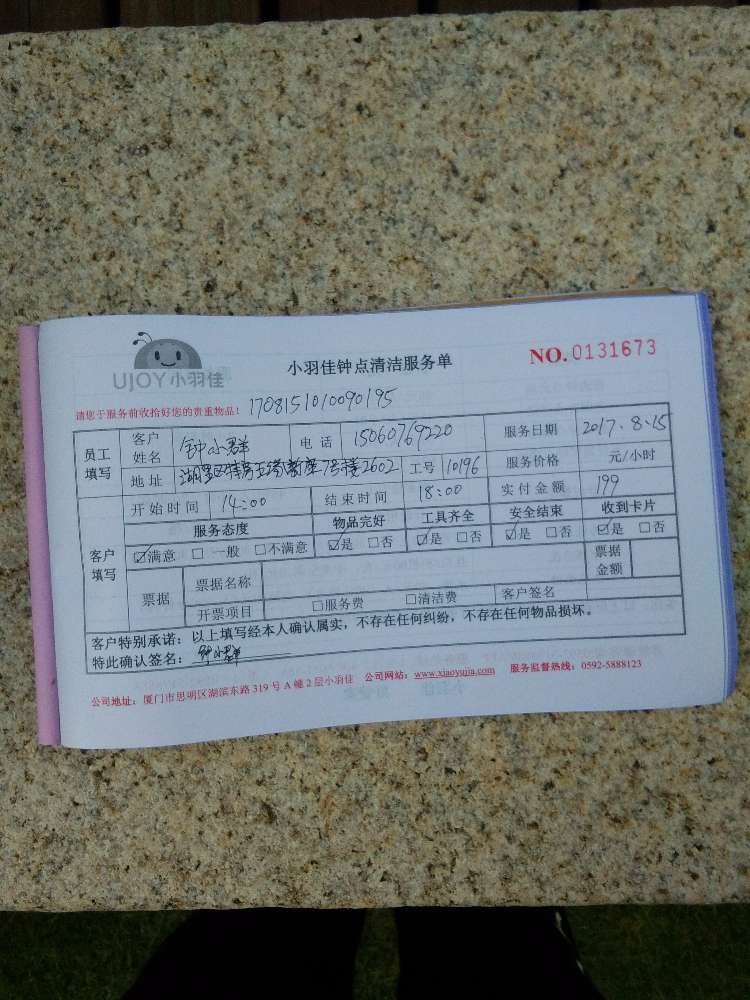 UJOY小羽佳
小羽佳钟点清洁服务单
NO.0131673
请您于服务前收拾好您的贵重物品！ 1708151010090195
员工填写 客户姓名 钟小群 电话 15060769220 服务日期 2017.8.15
地址 湖里区 7号楼2602 工号 10196 服务价格 元/小时
客户填写 开始时间 14:00 结束时间 18:00 实付金额 199
服务态度 物品完好 工具齐全 安全结束 收到卡片
☑满意 □一般 □不满意 ☑是 □否 ☑是 □否 ☑是 □否 ☑是 □否
票据 票据名称 票据金额
开票项目 □服务费 □清洁费 客户签名
客户特别承诺：以上填写经本人确认属实，不存在任何纠纷，不存在任何物品损坏。
特此确认签名：钟小群
公司地址：厦门市思明区湖滨东路319号A幢2层小羽佳 公司网站：www.xiaoyujia.com 服务监督热线：0592-5888123